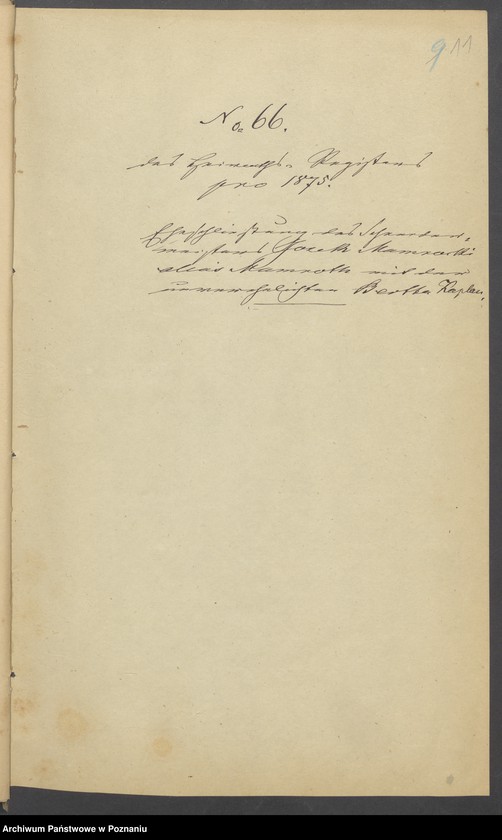 9 11
No 66.
des Heiraths-Registers
pro 1875.
Eheschließung des Schneider-
meisters Joseph Mamrotki
alias Mamroth mit der
unverehelichten Bertha Kaplan.
Archiwum Państwowe w Poznaniu